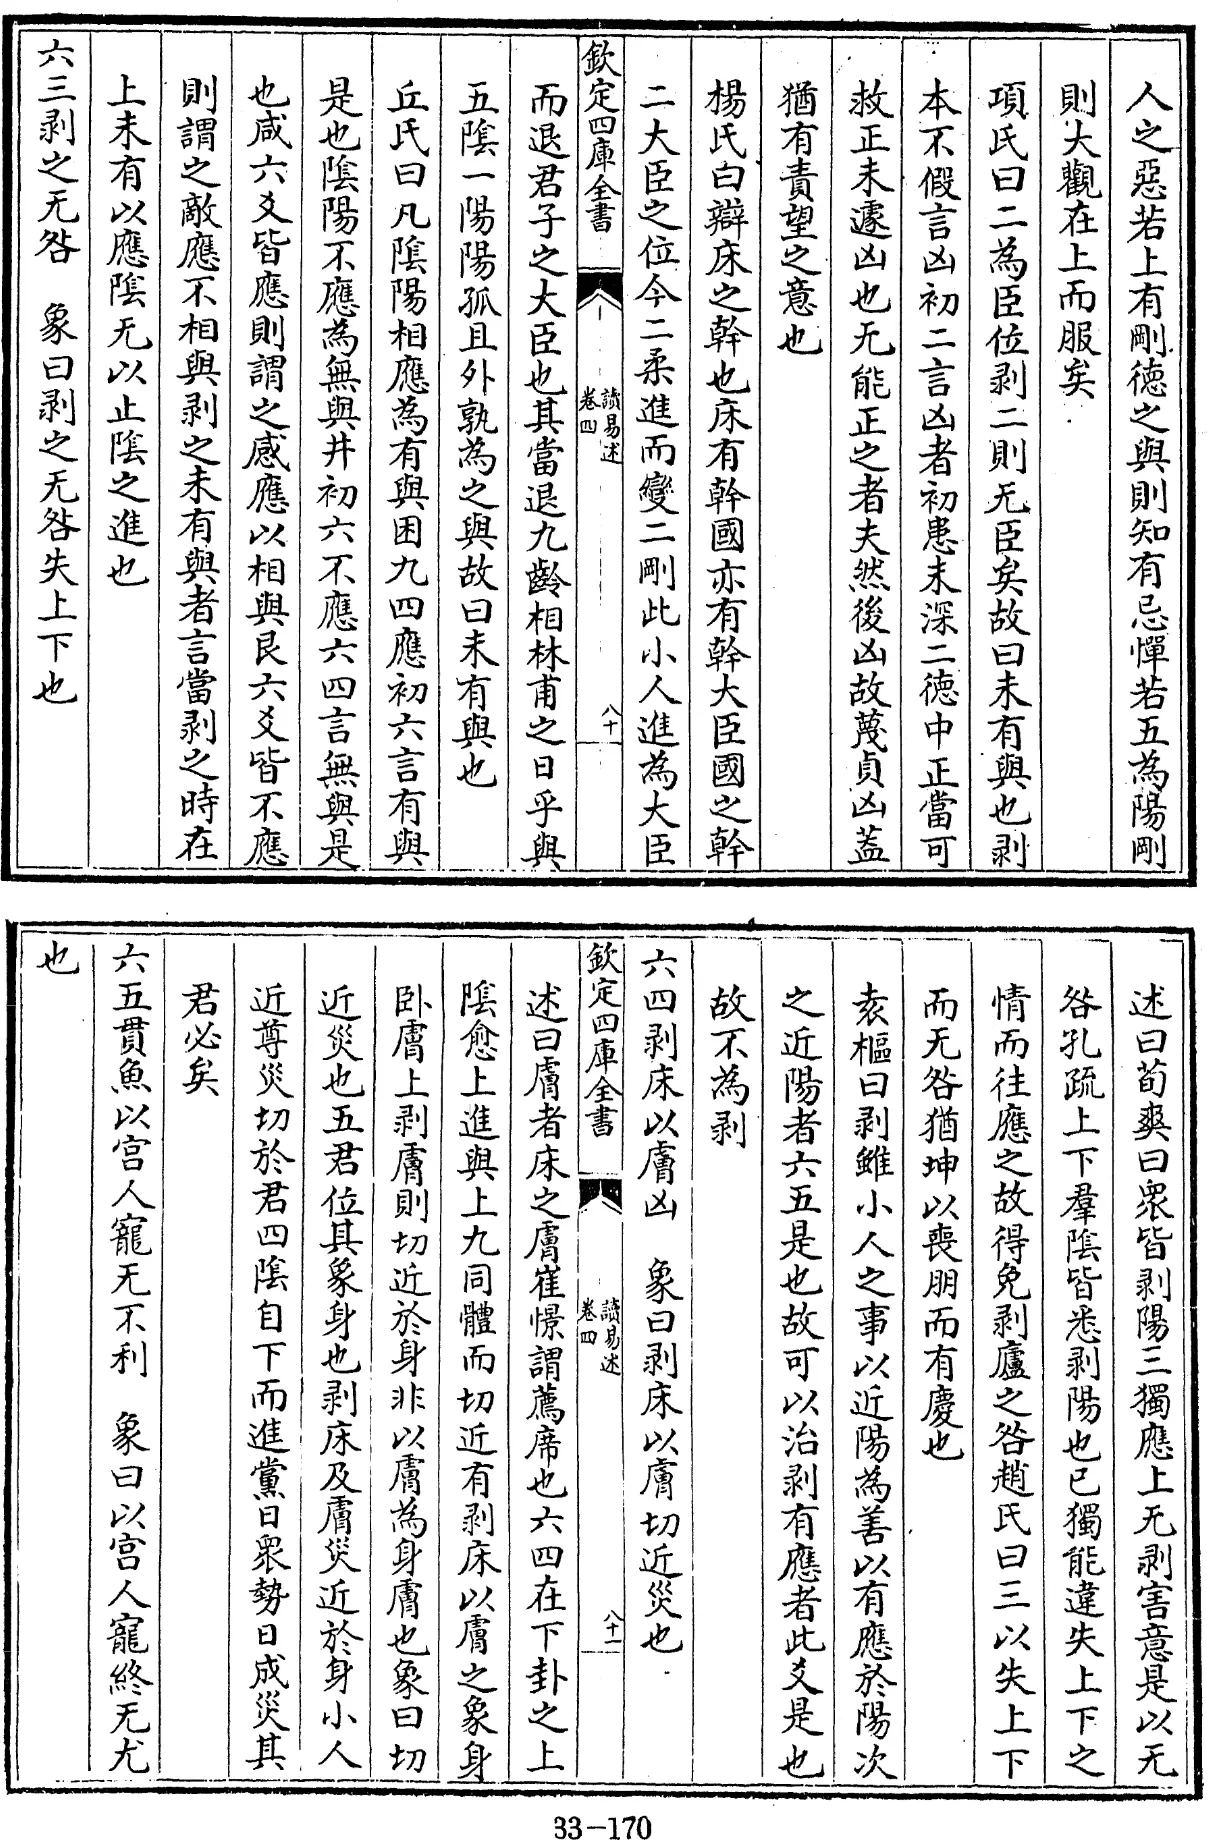 人之惡若上有剛德之與則知有忌憚若五為陽剛
則大觀在上而服矣
項氏曰二為臣位剥二則无臣矣故曰未有與也剥
本不假言凶初二言凶者初患未深二德中正當可
救正未遽凶也无能正之者夫然後凶故蔑貞凶蓋
猶有責望之意也
楊氏曰辯床之幹也床有幹國亦有幹大臣國之幹
二大臣之位今二柔進而變二剛此小人進為大臣
欽定四庫全書
讀易述
卷四
八十
而退君子之大臣也其當退九齡相林甫之日乎與
五陰一陽陽孤且外孰為之與故曰未有與也
丘氏曰凡陰陽相應為有與困九四應初六言有與
是也陰陽不應為無與井初六不應六四言無與是
也咸六爻皆應則謂之感應以相與艮六爻皆不應
則謂之敵應不相與剥之未有與者言當剥之時在
上未有以應陰无以止陰之進也
六三剥之无咎　象曰剥之无咎失上下也
述曰荀爽曰衆皆剥陽三獨應上无剥害意是以无
咎孔疏上下羣陰皆悉剥陽也已獨能違失上下之
情而往應之故得免剥廬之咎趙氏曰三以失上下
而无咎猶坤以喪朋而有慶也
袁樞曰剥雖小人之事以近陽為善以有應於陽次
之近陽者六五是也故可以治剥有應者此爻是也
故不為剥
六四剥床以膚凶　象曰剥床以膚切近災也
欽定四庫全書
讀易述
卷四
八十一
述曰膚者床之膚崔憬謂薦席也六四在下卦之上
陰愈上進與上九同體而切近有剥床以膚之象身
卧膚上剥膚則切近於身非以膚為身膚也象曰切
近災也五君位其象身也剥床及膚災近於身小人
近尊災切於君四陰自下而進黨日衆勢日成災其
君必矣
六五貫魚以宫人寵无不利　象曰以宫人寵終无尤
也
33-170